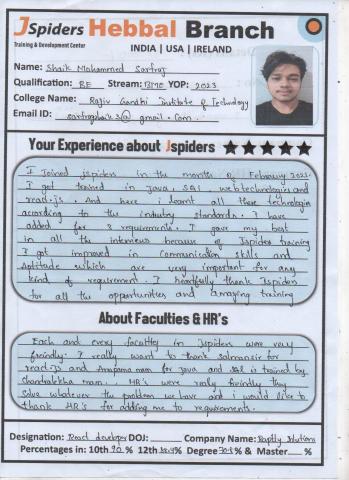 JSpiders Hebbal Branch
Training & Development Center
INDIA | USA | IRELAND
Name: Shaik Mohammed Sarfraj
Qualification: BE Stream: BME YOP: 2023
College Name: Rajiv Gandhi Institute of Technology
Email ID: @ gmail.com
Your Experience about Jspiders
I Joined jspiders in the month of February 2021.
I got trained in Java, SQL, web technologies and
react.js. And here i learnt all these technologies
according to the industry standards. I have
added for 8 requirements. I gave my best
in all the interviews because of Jspiders training
I got improved in communication skills and
Aptitude which are very important for any
kind of requirement. I heartfully thank Jspiders
for all the opportunities and amazing training
About Faculties & HR's
Each and every faculties in Jspiders were very
friendly. I really want to thank salmansir for
react.js and Anupama mam for Java and SQL is trained by
chandralekha mam. HR's were really friendly they
solve whatever the problem we have and i would like to
thank HR's for adding me to requirements.
Designation: React developer DOJ: Company Name: Solutions
Percentages in: 10th 90 % 12th % Degree % & Master %